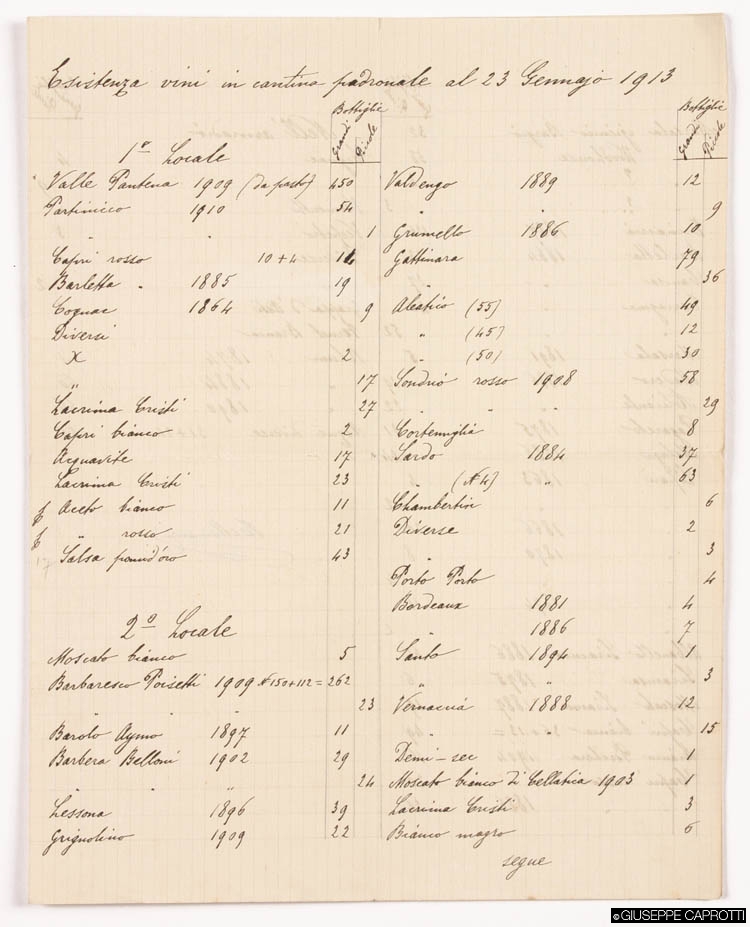 Esistenza vini in cantina padronale al 23 Gennajo 1913
Bottiglie
Grandi Piccole
1º Locale
Valle Pantena 1909 (da pasto) 450
Partinico 1910 54
" " 1
Capri rosso 10+4 14
Barletta " 1885 19
Cognac 1864 9
Diversi
X 2
" 17
Lacrima Cristi 27
Capri bianco 2
Acquavite 17
Lacrima Cristi 23
Aceto bianco 11
" rosso 21
Salsa pomid'oro 43
2º Locale
Moscato bianco 5
Barbaresco Poisetti 1909 N 150+112= 262
" " " 23
Barolo Aymo 1897 11
Barbera Belloni 1902 29
" " " 24
Lessona 1896 39
Grignolino 1909 22
Bottiglie
Grandi Piccole
Valdengo 1889 12
" " 9
Grumello 1886 10
Gattinara 79
" 36
Aleatico (55) 49
" (45) 12
" (50) 30
Sondrio rosso 1908 58
" " " 29
Cortenuglia 8
Sardo 1884 37
" (N 4) " 63
Chambertin 6
Diverse 2
" 3
Porto Porto 4
Bordeaux 1881 4
" 1886 7
Santo 1894 1
" " 3
Vernaccia 1888 12
" 15
Demi-sec 1
Moscato bianco di Cellatica 1903 1
Lacrima Cristi 3
Bianco magro 6
segue
©GIUSEPPE CAPROTTI